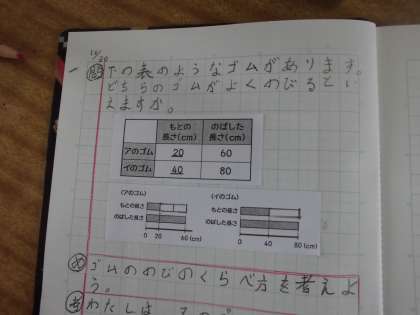 12/20
一
問 下の表のようなゴムがあります。
どちらのゴムがよくのびるとい
えますか。
もとの長さ(cm) のばした長さ(cm)
アのゴム 20 60
イのゴム 40 80
(アのゴム)
もとの長さ
のばした長さ
0 20 60 (cm)
(イのゴム)
もとの長さ
のばした長さ
0 40 80 (cm)
め ゴムののびのくらべ方を考えよ
う。
考 わたしは